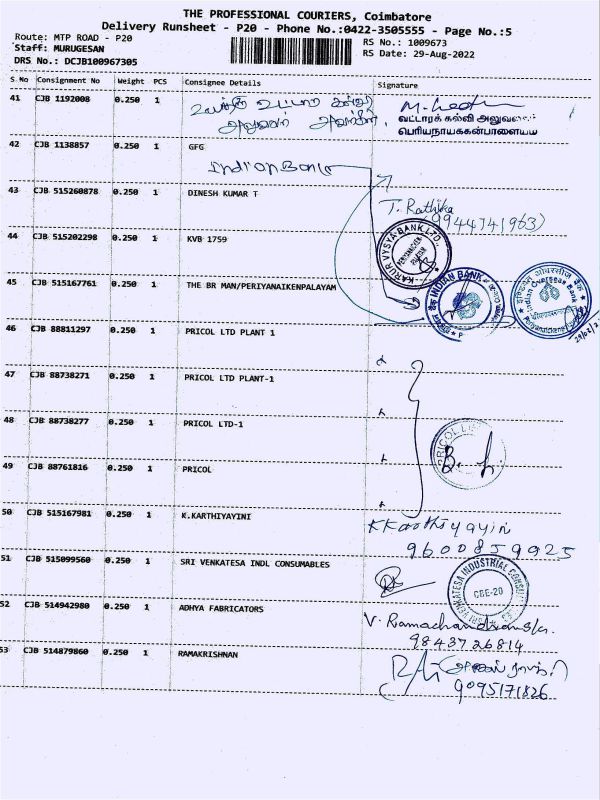 THE PROFESSIONAL COURIERS, Coimbatore
Delivery Runsheet - P20 - Phone No.:0422-3505555 - Page No.:5
Route: MTP ROAD - P20 RS No.: 1009673
Staff: MURUGESAN RS Date: 29-Aug-2022
DRS No.: DCJB100967305
S.No Consignment No Weight PCS Consignee Details Signature
41 CJB 1192008 0.250 1
வட்டாரக் கல்வி அலுவலர்
பெரியநாயக்கன்பாளையம்
42 CJB 1138857 0.250 1 GFG
Indian Bank
43 CJB 515260878 0.250 1 DINESH KUMAR T
T. Rathika
9944741963)
44 CJB 515202298 0.250 1 KVB 1759
KARUR VYSYA BANK LTD.
45 CJB 515167761 0.250 1 THE BR MAN/PERIYANAIKENPALAYAM
INDIAN BANK
Indian Overseas Bank
46 CJB 88811297 0.250 1 PRICOL LTD PLANT 1
47 CJB 88738271 0.250 1 PRICOL LTD PLANT-1
48 CJB 88738277 0.250 1 PRICOL LTD-1
PRICOL
49 CJB 88761816 0.250 1 PRICOL
50 CJB 515167981 0.250 1 K.KARTHIYAYINI
KKarthiyayini
9600859925
51 CJB 515099560 0.250 1 SRI VENKATESA INDL CONSUMABLES
SRI VENKATESA INDUSTRIAL
CBE-20
52 CJB 514942980 0.250 1 ADHYA FABRICATORS
V. Ramachandran
9843726814
53 CJB 514879860 0.250 1 RAMAKRISHNAN
9095171826